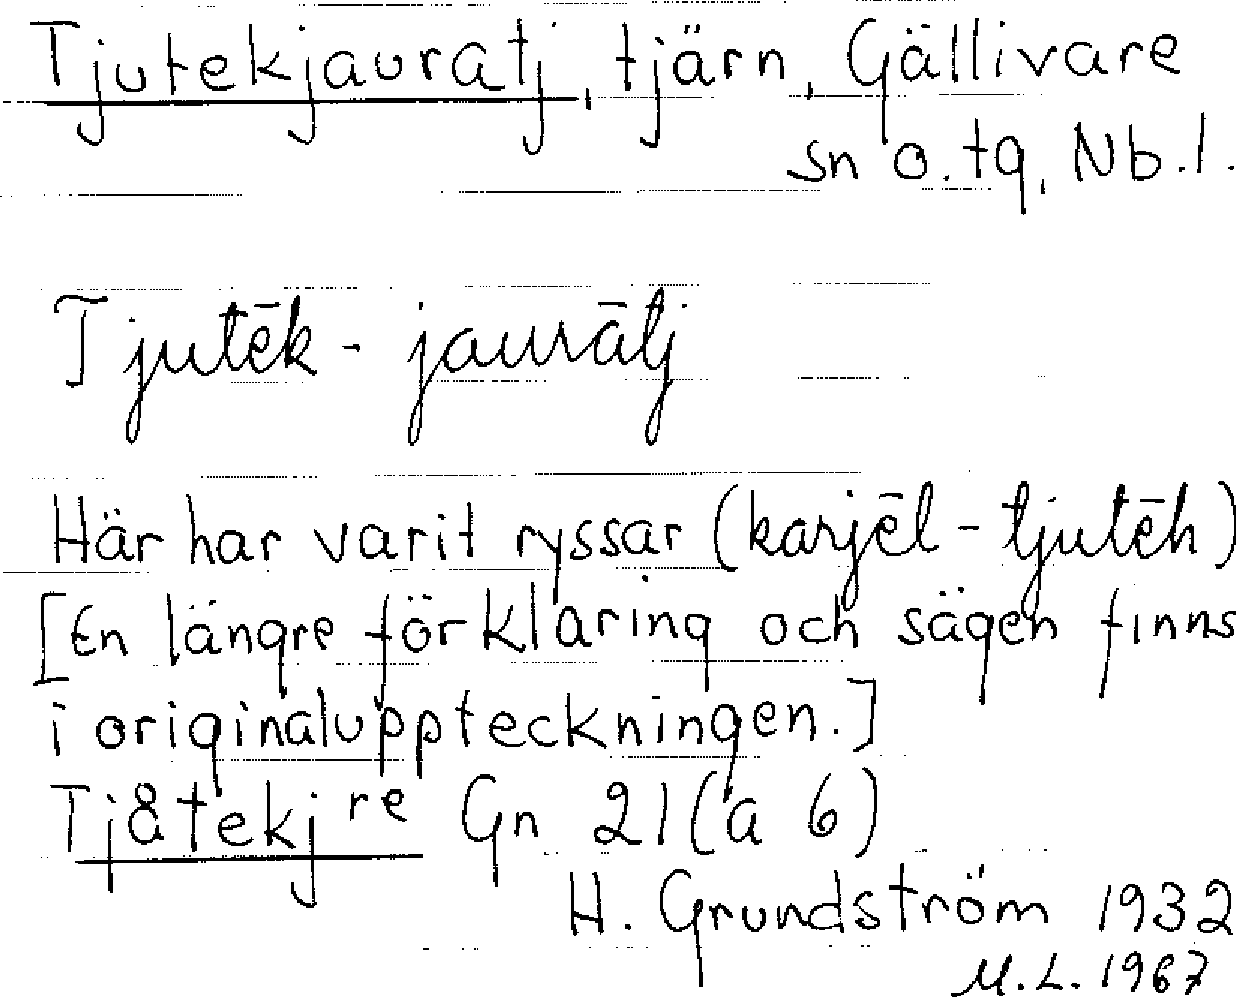 Tjutekjauratj, tjärn, Gällivare
sn o. tg, Nb.l.
Tjutēk-jaurātj
Här har varit ryssar (karjēl-tjutēh)
[En längre förklaring och sägen finns
i originaluppteckningen.]
Tjåtekjre Gn 21(a 6)
H. Grundström 1932
M.L. 1967